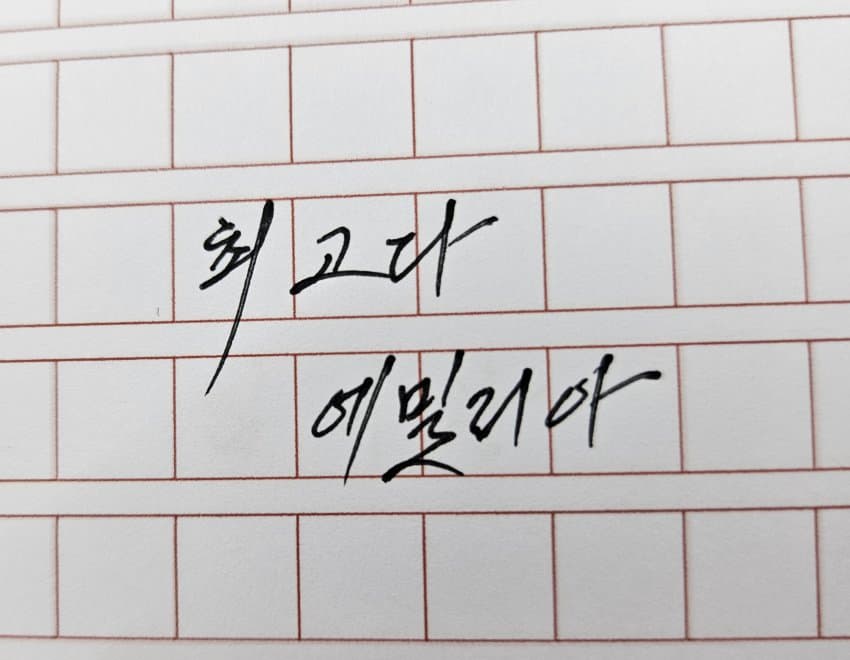 최고다
에밀리아